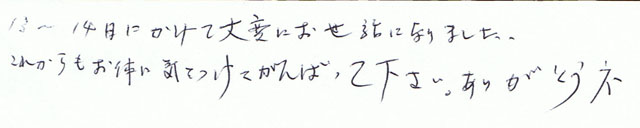 13〜14日にかけて大変にお世話になりました。
これからもお体に気をつけてがんばって下さい。ありがとうネ